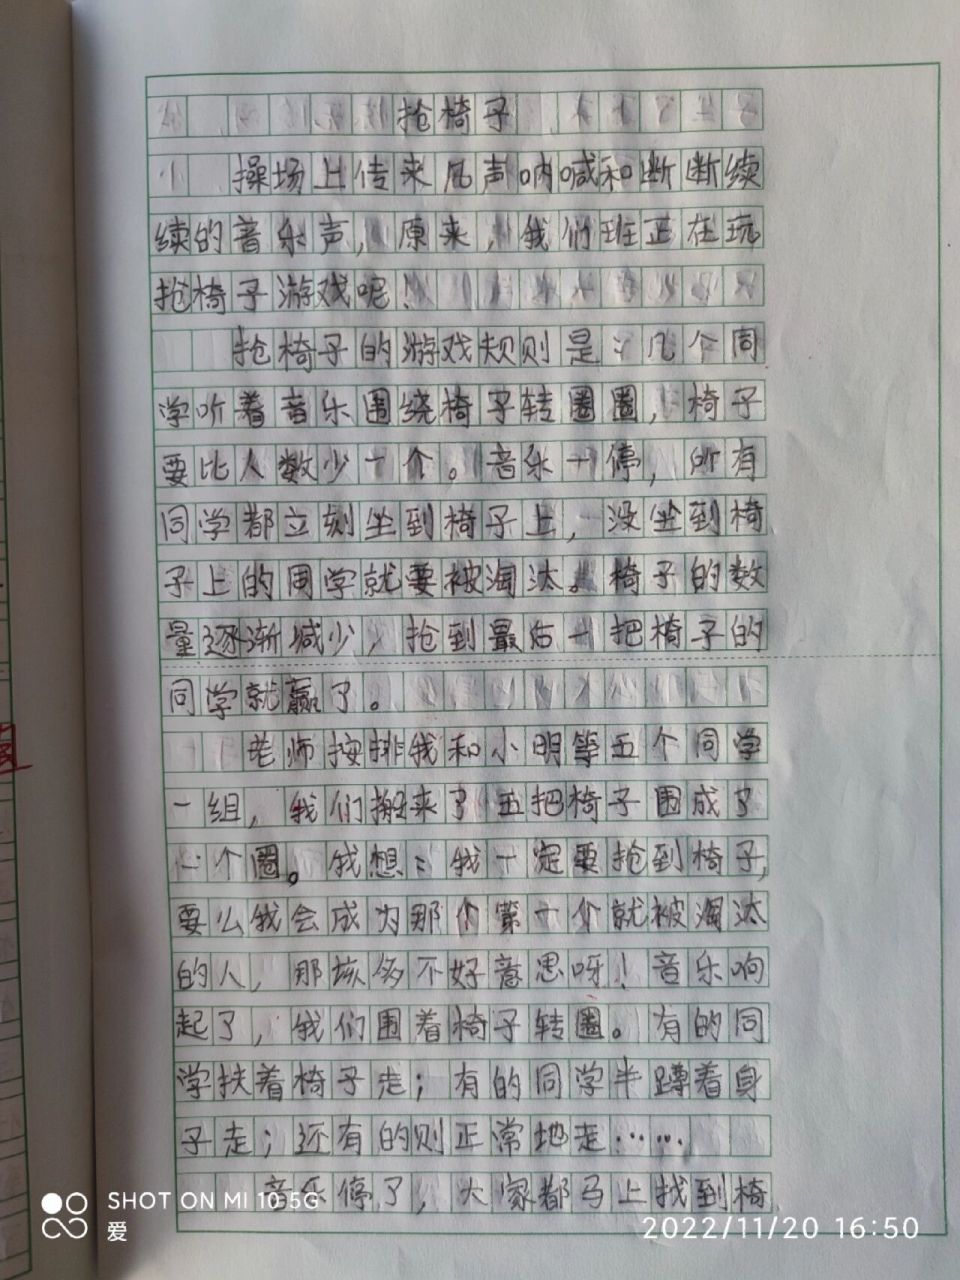 抢椅子
操场上传来几声呐喊和断断续
续的音乐声，原来，我们班正在玩
抢椅子游戏呢！
抢椅子的游戏规则是：几个同
学听着音乐围绕椅子转圈圈，椅子
要比人数少一个。音乐一停，所有
同学都立刻坐到椅子上，没坐到椅
子上的同学就要被淘汰。椅子的数
量逐渐减少，抢到最后一把椅子的
同学就赢了。
老师按排我和小明等五个同学
一组，我们搬来了五把椅子围成了
一个圈。我想：我一定要抢到椅子，
要么我会成为那个第一个就被淘汰
的人，那该多不好意思呀！音乐响
起了，我们围着椅子转圈。有的同
学扶着椅子走；有的同学半蹲着身
子走；还有的则正常地走……
音乐停了，大家都马上找到椅
SHOT ON MI 10 5G
爱
2022/11/20 16:50